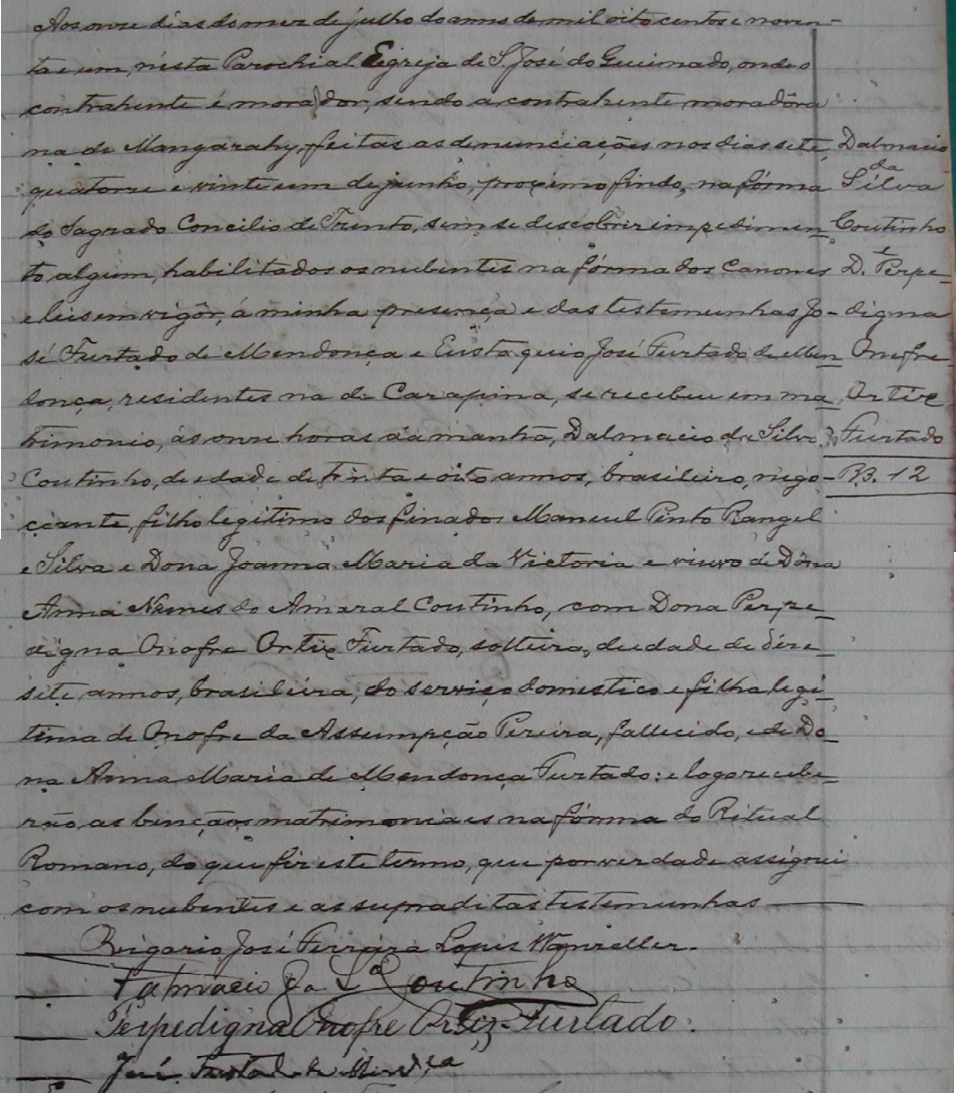 Aos onze dias do mez de julho do anno de mil oito centos e noven-
ta e um, nésta Parochial Egreja de S. José do Queimado, onde o
contrahente é morador, sendo a contrahente moradôra
na de Mangarahy, feitas as denunciações nos dias sete,
quatorze e vinte um de junho, proximo findo, na fórma
do Sagrado Concilio de Trento, sem se descobrir impedimen
to algum, habilitados os nubentes na fórma dos canones
e leis em vigôr, á minha presença e das testemunhas Jo-
sé Furtado de Mendonça e Eustaquio José Furtado de Men
donça, residentes na de Carapina, se recebeu em ma
trimonio, ás onze horas da manhã, Dalmacio da Silva
Coutinho, de edade de trinta e oito annos, brasileiro, nego-
ciante, filho legitimo dos finados Manuel Pinto Rangel
e Silva e Dona Joanna Maria da Victoria e viuvo de Dôna
Anna Nunes do Amaral Coutinho, com Dona Perpe
digna Onofre Ortiz Furtado, solteira, de edade de déze
sete annos, brasileira, do serviço domestico e filha legi
tima de Onofre da Assumpção Pereira, fallecido, e de Do
na Anna Maria de Mendonça Furtado: e logo recebe
rão as bençãos matrimoniaes na fórma do Ritual
Romano, do que fiz este termo, que por verdade assignei
com os nubentes e as supraditas testemunhas
Vigario José Ferreira Lopes Wanzeller.
Dalmacio da Sª Coutinho
Perpedigna Onofre Ortiz Furtado.
José Furtado de Mendça
Dalmacio
da
Silva
Coutinho
e
D. Perpe
digna
Onofre
Ortiz
Furtado
B. 12